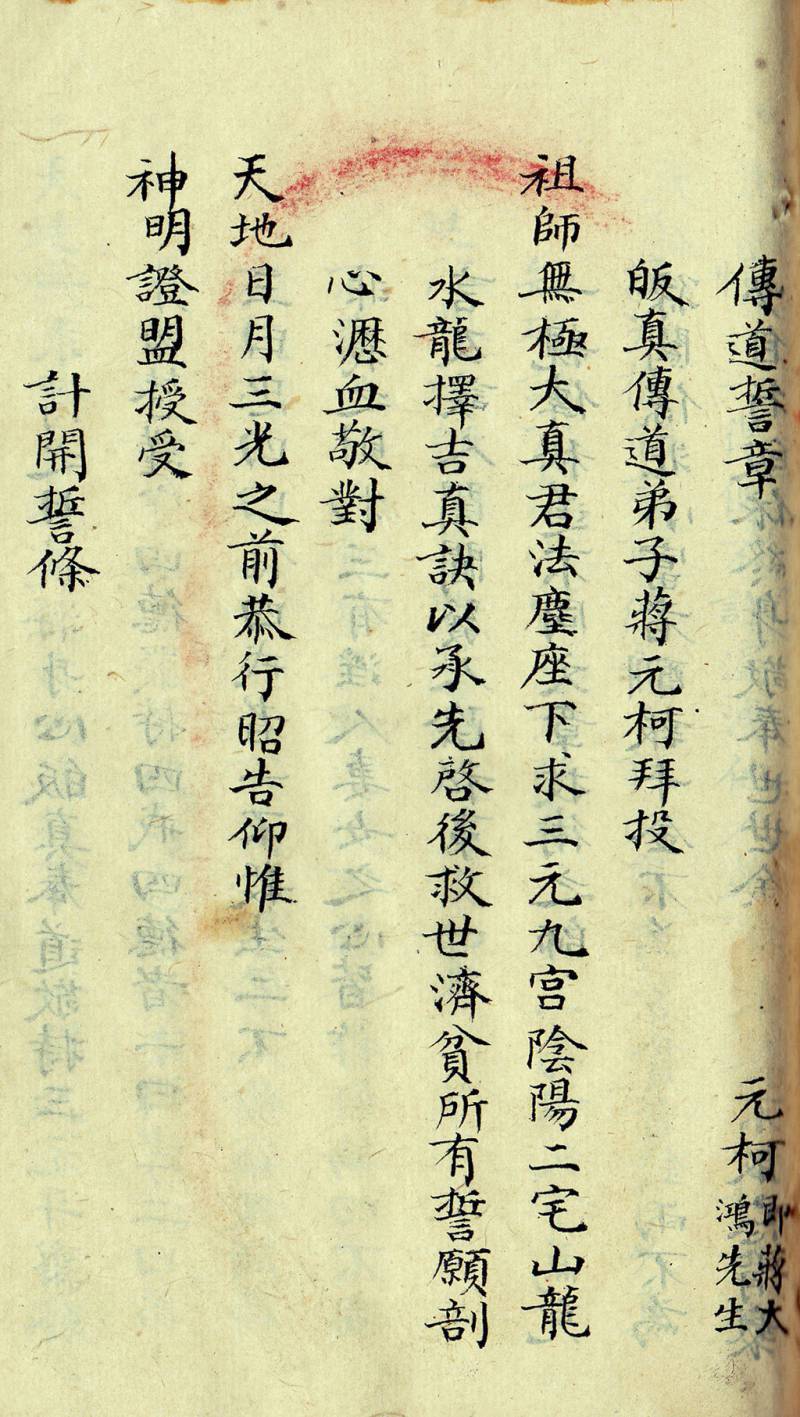 傳道誓章 元柯即蔣大鴻先生
皈真傳道弟子蔣元柯拜投
祖師無極大真君法塵座下求三元九宮陰陽二宅山龍
水龍擇吉真訣以承先啓後救世濟貧所有誓願剖
心瀝血敬對
天地日月三光之前恭行昭告仰惟
神明證盟授受
計開誓條